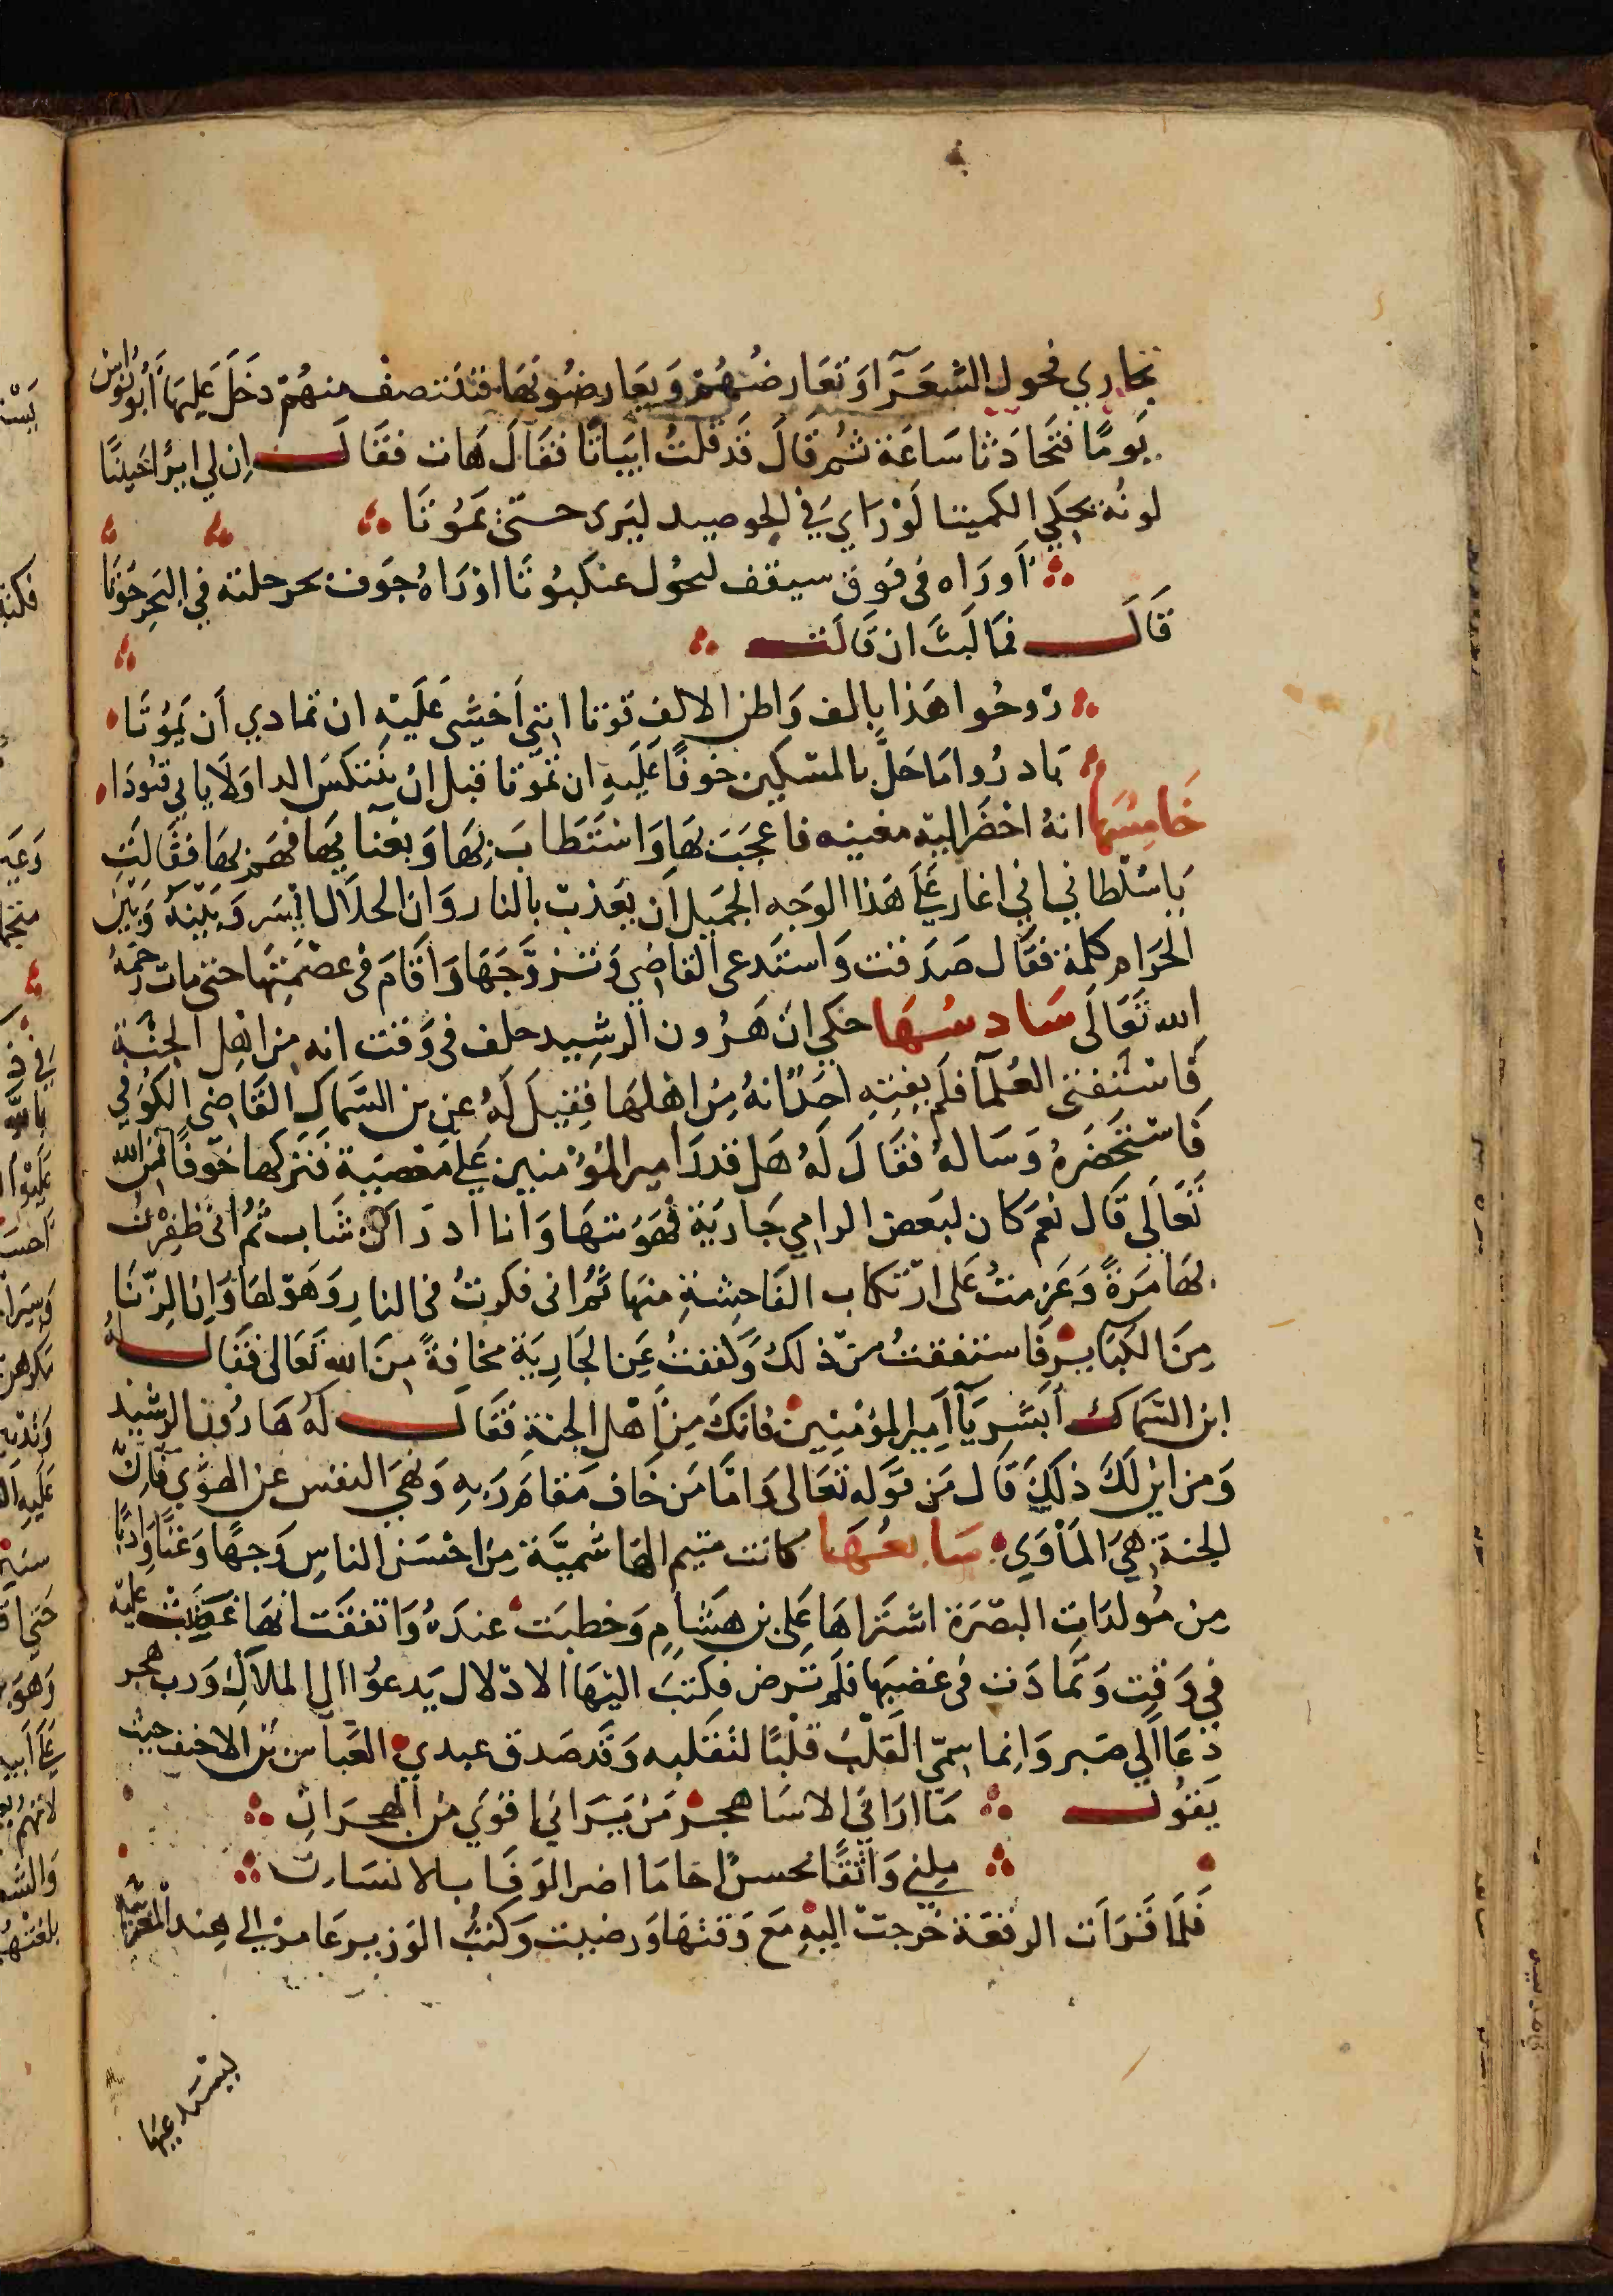 تجاري فحول الشعرا وتعارضهم ويعارضونها فتنتصف منهم دخل عليها أبو نواس
يومًا فتحادثا ساعة ثم قال قد قلت ابياتًا فقال هات فقال ان لي ايرًا خبيثًا
لونه يحكي الكميتا لو راي في الجو صيد ليرى حتى يموتا
أو راه في فوق سقف لحول عنكبوتا اوراه جوف بحر خلته في البحر حوتا
قال فما لبث ان قالت
زوحوا هذا بالف واظن الالف قوتا انني اخشى عليه ان تمادي ان يموتا
بادروا ما حل بالمسكين خوفًا عليه ان تموتا قبل ان ينتكس الدا ولا ياتي
خامسها انه احضر اليه مغنيه فاعجب بها واستطاب بها وبغنايها فهم بها فقالت
ياسلطاني اني اغار على هذا الوجه الجميل ان يعذب بالنار وان الحلال ايسر وبينه وبين
الحرام كلمة فقال صدقت واستدعى القاضي وتزوجها واقام في عصمتها حتى مات رحمه
الله تعالى سادسها حكي ان هرون الرشيد حلف في وقت انه من اهل الجنة
فاستفتى العلما فلم يفته احد انه من اهلها فقيل له عن بن السماك القاضي الكوفي
فاستحضره وساله فقال له هل قدر امير المؤمنين على معصية فتركها خوفًا من الله
تعالى قال نعم كان لبعض الزامي جارية فهويتها وانا اد ذاك شاب ثم انى ظفرت
بها مرةً وعزمت على ارتكاب الفاحشة منها ثم انى فكرت فى النار وهولها وان الزنا
من الكباير فاشفقت من ذلك وكففت عن الجارية مخافةً من الله تعالى فقال له
ابن السماك ابشر يا امير المؤمنين فانك من اهل الجنة فقال له هارون الرشيد
ومن اين لك ذلك قال من قوله تعالى واما من خاف مقام ربه ونهي النفس عن الهوي فان
الجنة هي الماوي سابعها كانت متيم الهاشمية من احسن الناس وجهًا وغنًا وادبًا
من مولدات البصرة اشتراها علي بن هشام وحظيت عنده واتفقت انها غضبت عليه
في وقت وتمادت في غضبها فلم ترض فكتب اليها الادلال يدعوا الى الملال ورب هجر
دعا الي صبر وانما سمي القلب قلبًا لتقلبه وقد صدق عبدي العباس بن الاحنف حيث
يقول ما اراني الا ساهجر من يراني اقوي من الهجران
ملني واثقًا بحسن اخا ما اضر الوفا بالانسان
فلما قرات الرقعة خرجت اليه مع وقتها ورضيت وكتب الوزير عامر الي هند المغنية
ليستدعيها